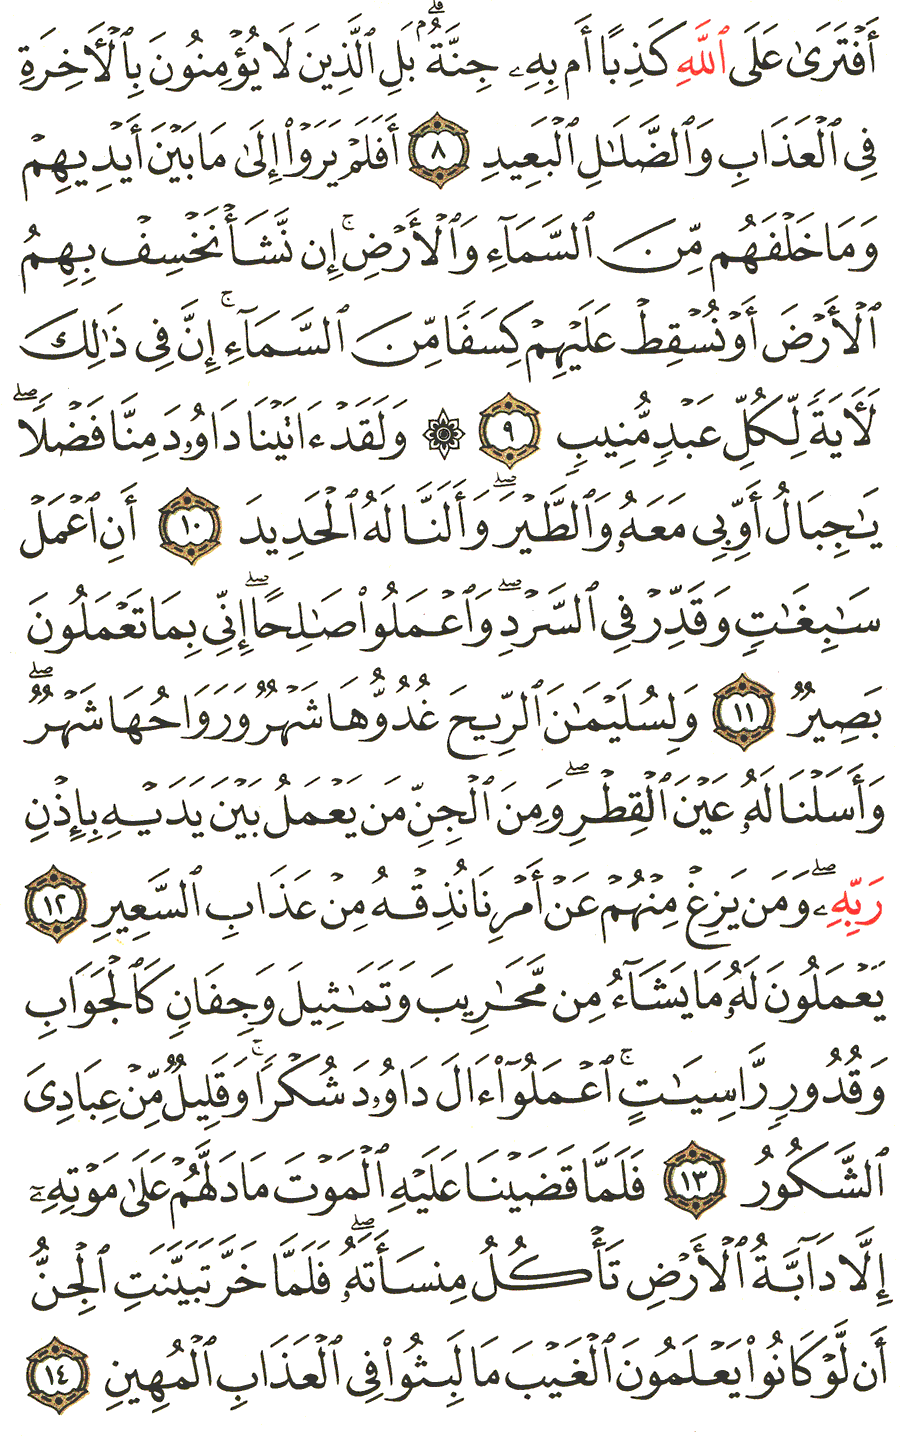 أَفْتَرَىٰ عَلَى ٱللَّهِ كَذِبًا أَم بِهِۦ جِنَّةٌۢ ۗ بَلِ ٱلَّذِينَ لَا يُؤْمِنُونَ بِٱلْـَٔاخِرَةِ
فِى ٱلْعَذَابِ وَٱلضَّلَـٰلِ ٱلْبَعِيدِ ٨ أَفَلَمْ يَرَوْا۟ إِلَىٰ مَا بَيْنَ أَيْدِيهِمْ
وَمَا خَلْفَهُم مِّنَ ٱلسَّمَآءِ وَٱلْأَرْضِ ۚ إِن نَّشَأْ نَخْسِفْ بِهِمُ
ٱلْأَرْضَ أَوْ نُسْقِطْ عَلَيْهِمْ كِسَفًا مِّنَ ٱلسَّمَآءِ ۚ إِنَّ فِى ذَٰلِكَ
لَـَٔايَةً لِّكُلِّ عَبْدٍ مُّنِيبٍ ٩ ۞ وَلَقَدْ ءَاتَيْنَا دَاوُۥدَ مِنَّا فَضْلًا ۖ
يَـٰجِبَالُ أَوِّبِى مَعَهُۥ وَٱلطَّيْرَ ۖ وَأَلَنَّا لَهُ ٱلْحَدِيدَ ١٠ أَنِ ٱعْمَلْ
سَـٰبِغَـٰتٍ وَقَدِّرْ فِى ٱلسَّرْدِ ۖ وَٱعْمَلُوا۟ صَـٰلِحًا ۖ إِنِّى بِمَا تَعْمَلُونَ
بَصِيرٌ ١١ وَلِسُلَيْمَـٰنَ ٱلرِّيحَ غُدُوُّهَا شَهْرٌ وَرَوَاحُهَا شَهْرٌ ۖ
وَأَسَلْنَا لَهُۥ عَيْنَ ٱلْقِطْرِ ۖ وَمِنَ ٱلْجِنِّ مَن يَعْمَلُ بَيْنَ يَدَيْهِ بِإِذْنِ
رَبِّهِۦ ۖ وَمَن يَزِغْ مِنْهُمْ عَنْ أَمْرِنَا نُذِقْهُ مِنْ عَذَابِ ٱلسَّعِيرِ ١٢
يَعْمَلُونَ لَهُۥ مَا يَشَآءُ مِن مَّحَـٰرِيبَ وَتَمَـٰثِيلَ وَجِفَانٍ كَٱلْجَوَابِ
وَقُدُورٍ رَّاسِيَـٰتٍ ۚ ٱعْمَلُوٓا۟ ءَالَ دَاوُۥدَ شُكْرًا ۚ وَقَلِيلٌ مِّنْ عِبَادِىَ
ٱلشَّكُورُ ١٣ فَلَمَّا قَضَيْنَا عَلَيْهِ ٱلْمَوْتَ مَا دَلَّهُمْ عَلَىٰ مَوْتِهِۦٓ
إِلَّا دَآبَّةُ ٱلْأَرْضِ تَأْكُلُ مِنسَأَتَهُۥ ۖ فَلَمَّا خَرَّ تَبَيَّنَتِ ٱلْجِنُّ
أَن لَّوْ كَانُوا۟ يَعْلَمُونَ ٱلْغَيْبَ مَا لَبِثُوا۟ فِى ٱلْعَذَابِ ٱلْمُهِينِ ١٤